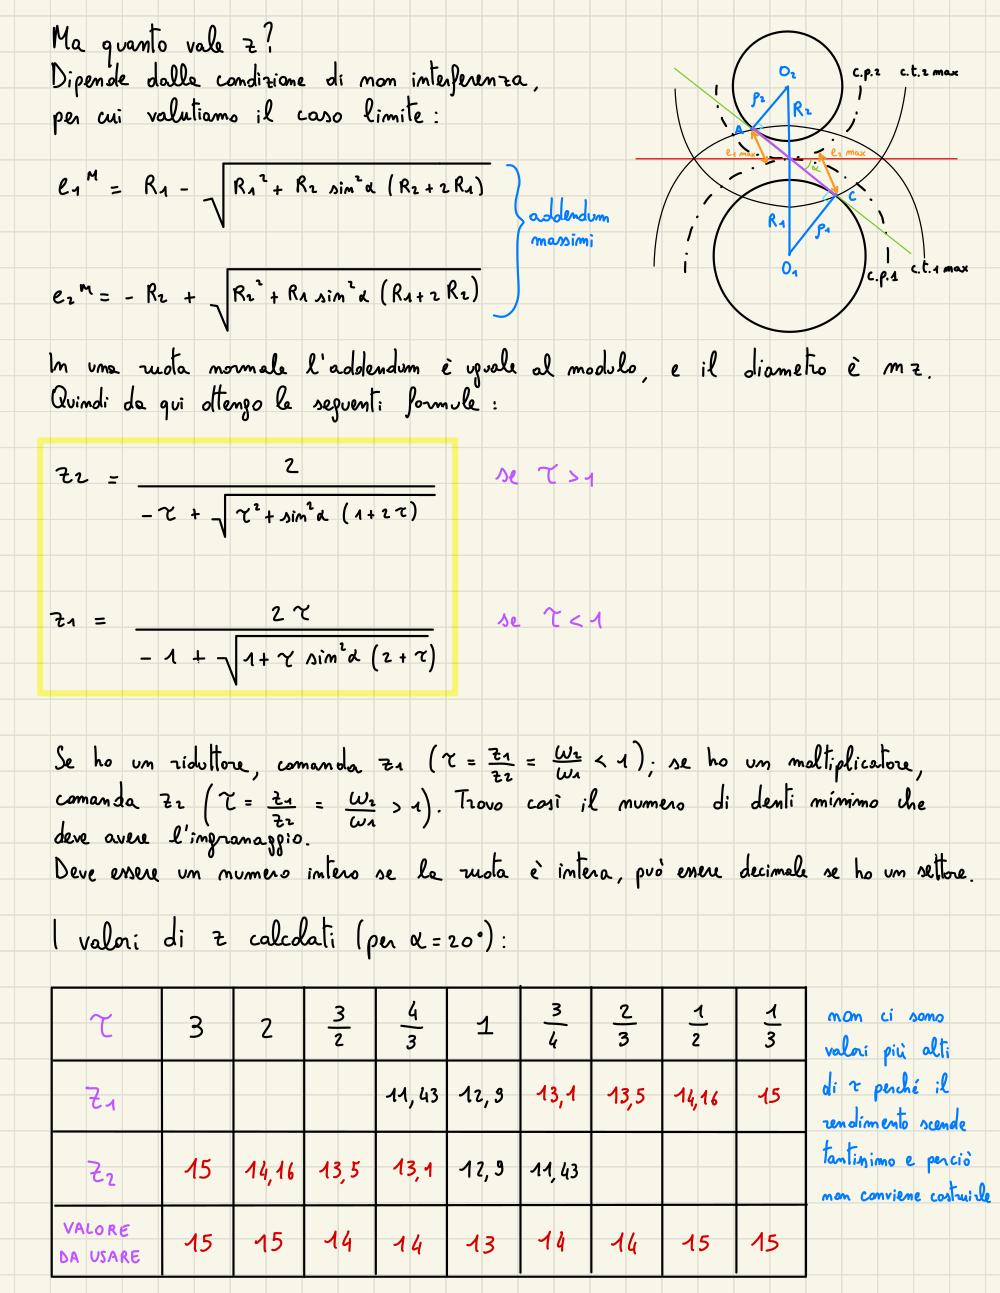 Ma quanto vale z?
Dipende dalla condizione di non interferenza,
per cui valutiamo il caso limite:
e₁ᴹ = R₁ - √(R₁² + R₂ sin²α (R₂ + 2R₁))
e₂ᴹ = - R₂ + √(R₂² + R₁ sin²α (R₁ + 2R₂))
addendum
massimi
O₂
c.p.2
c.t.2 max
ρ₂
R₂
A
e₁ max
e₂ max
α
C
R₁
ρ₁
O₁
c.p.1
c.t.1 max
In una ruota normale l'addendum è uguale al modulo, e il diametro è mz.
Quindi da qui ottengo le seguenti formule:
z₂ = 2 / (-τ + √(τ² + sin²α (1+2τ))) se τ > 1
z₁ = 2τ / (-1 + √(1 + τ sin²α (2+τ))) se τ < 1
Se ho un riduttore, comanda z₁ (τ = z₁/z₂ = ω₂/ω₁ < 1); se ho un moltiplicatore,
comanda z₂ (τ = z₁/z₂ = ω₂/ω₁ > 1). Trovo così il numero di denti minimo che
deve avere l'ingranaggio.
Deve essere un numero intero se la ruota è intera, può essere decimale se ho un settore.
I valori di z calcolati (per α = 20°):
τ 3 2 3/2 4/3 1 3/4 2/3 1/2 1/3
z₁ 11,43 12,9 13,1 13,5 14,16 15
z₂ 15 14,16 13,5 13,1 12,9 11,43
VALORE
DA USARE 15 15 14 14 13 14 14 15 15
non ci sono
valori più alti
di τ perché il
rendimento scende
tantissimo e perciò
non conviene costruirle